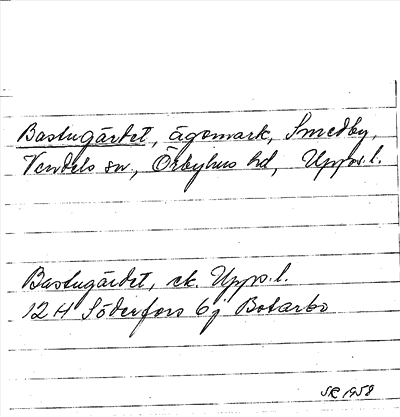 Bastugärdet, ägomark, Smedby,
Vendels sn, Örbyhus hd, Upps.l.
Bastugärdet, ek. Upps.l.
12 H Söderfors 6j Botarbo
SR 1958